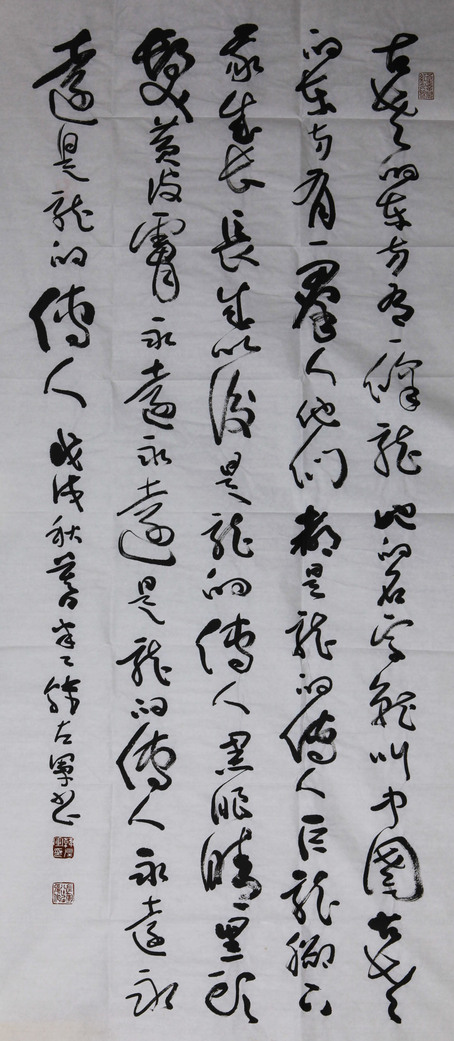 古老的東方有一條龍她的名字就叫中國古老
的東方有一羣人他們都是龍的傳人巨龍腳下
我成長長成以後是龍的傳人黑眼睛黑頭
髮黃皮膚永遠永遠是龍的傳人永遠永
遠是龍的傳人 戊戌秋暮左軍書